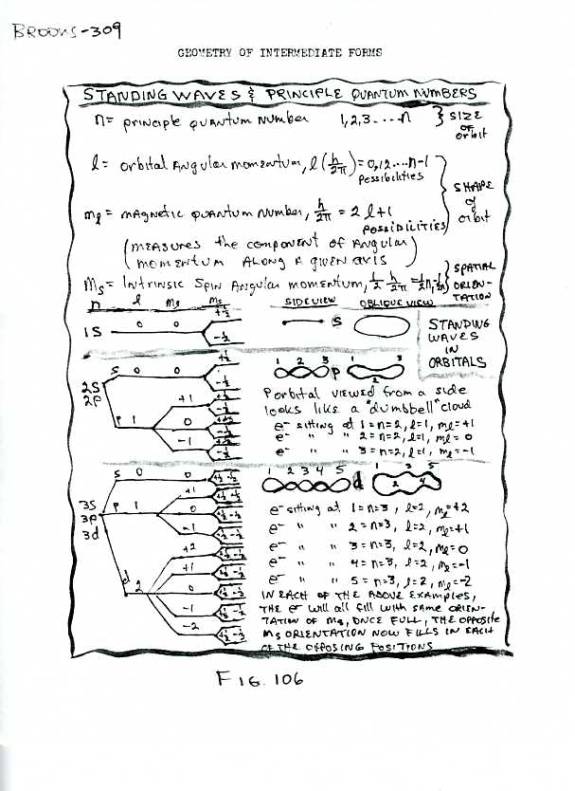 BROOKS-309
GEOMETRY OF INTERMEDIATE FORMS
STANDING WAVES & PRINCIPLE QUANTUM NUMBERS
n = principle quantum number 1,2,3....n } SIZE OF orbit
l = orbital Angular momentum, l(h/2π) = 0,1,2....n-1 possibilities
mℓ = MAgnetic quantum number, h/2π = 2l+1 possibilities
SHAPE of orbit
(measures the component of Angular
momentum along a given axis)
Ms = Intrinsic Spin Angular momentum, 1/2 h/2π =
SPATIAL ORIEN-TATION
n l mℓ ms SIDEVIEW OBLIQUE VIEW
1S 0 0 +½ -½ S
STANDING
WAVES
IN
ORBITALS
2S
2P
S 0 0 +½ -½
P 1 +1 0 -1
1 2 3 P 1 2 3
P orbital viewed from a side
looks like a "dumbbell" cloud
e- sitting at 1 = n=2, l=1, mℓ=+1
e- " " 2 = n=2, l=1, mℓ= 0
e- " " 3 = n=2, l=1, mℓ= -1
3S
3P
3d
S 0 0
P 1 +1 0 -1
d 2 +2 +1 0 -1 -2
1 2 3 4 5 d 1 2 3 4 5
e- sitting at 1 = n=3, l=2, mℓ+2
e- " " 2 = n=3, l=2, mℓ+1
e- " " 3 = n=3, l=2, mℓ=0
e- " " 4 = n=3, l=2, mℓ=-1
e- " " 5 = n=3, l=2, mℓ=-2
IN EACH OF THE ABOVE EXAMPLES,
THE e- will all fill with same ORIEN-
TATION OF ms, ONCE FULL, THE OPPOSITE
Ms ORIENTATION NOW FILLS IN EACH
OF THE OPPOSING POSITIONS
FIG. 106